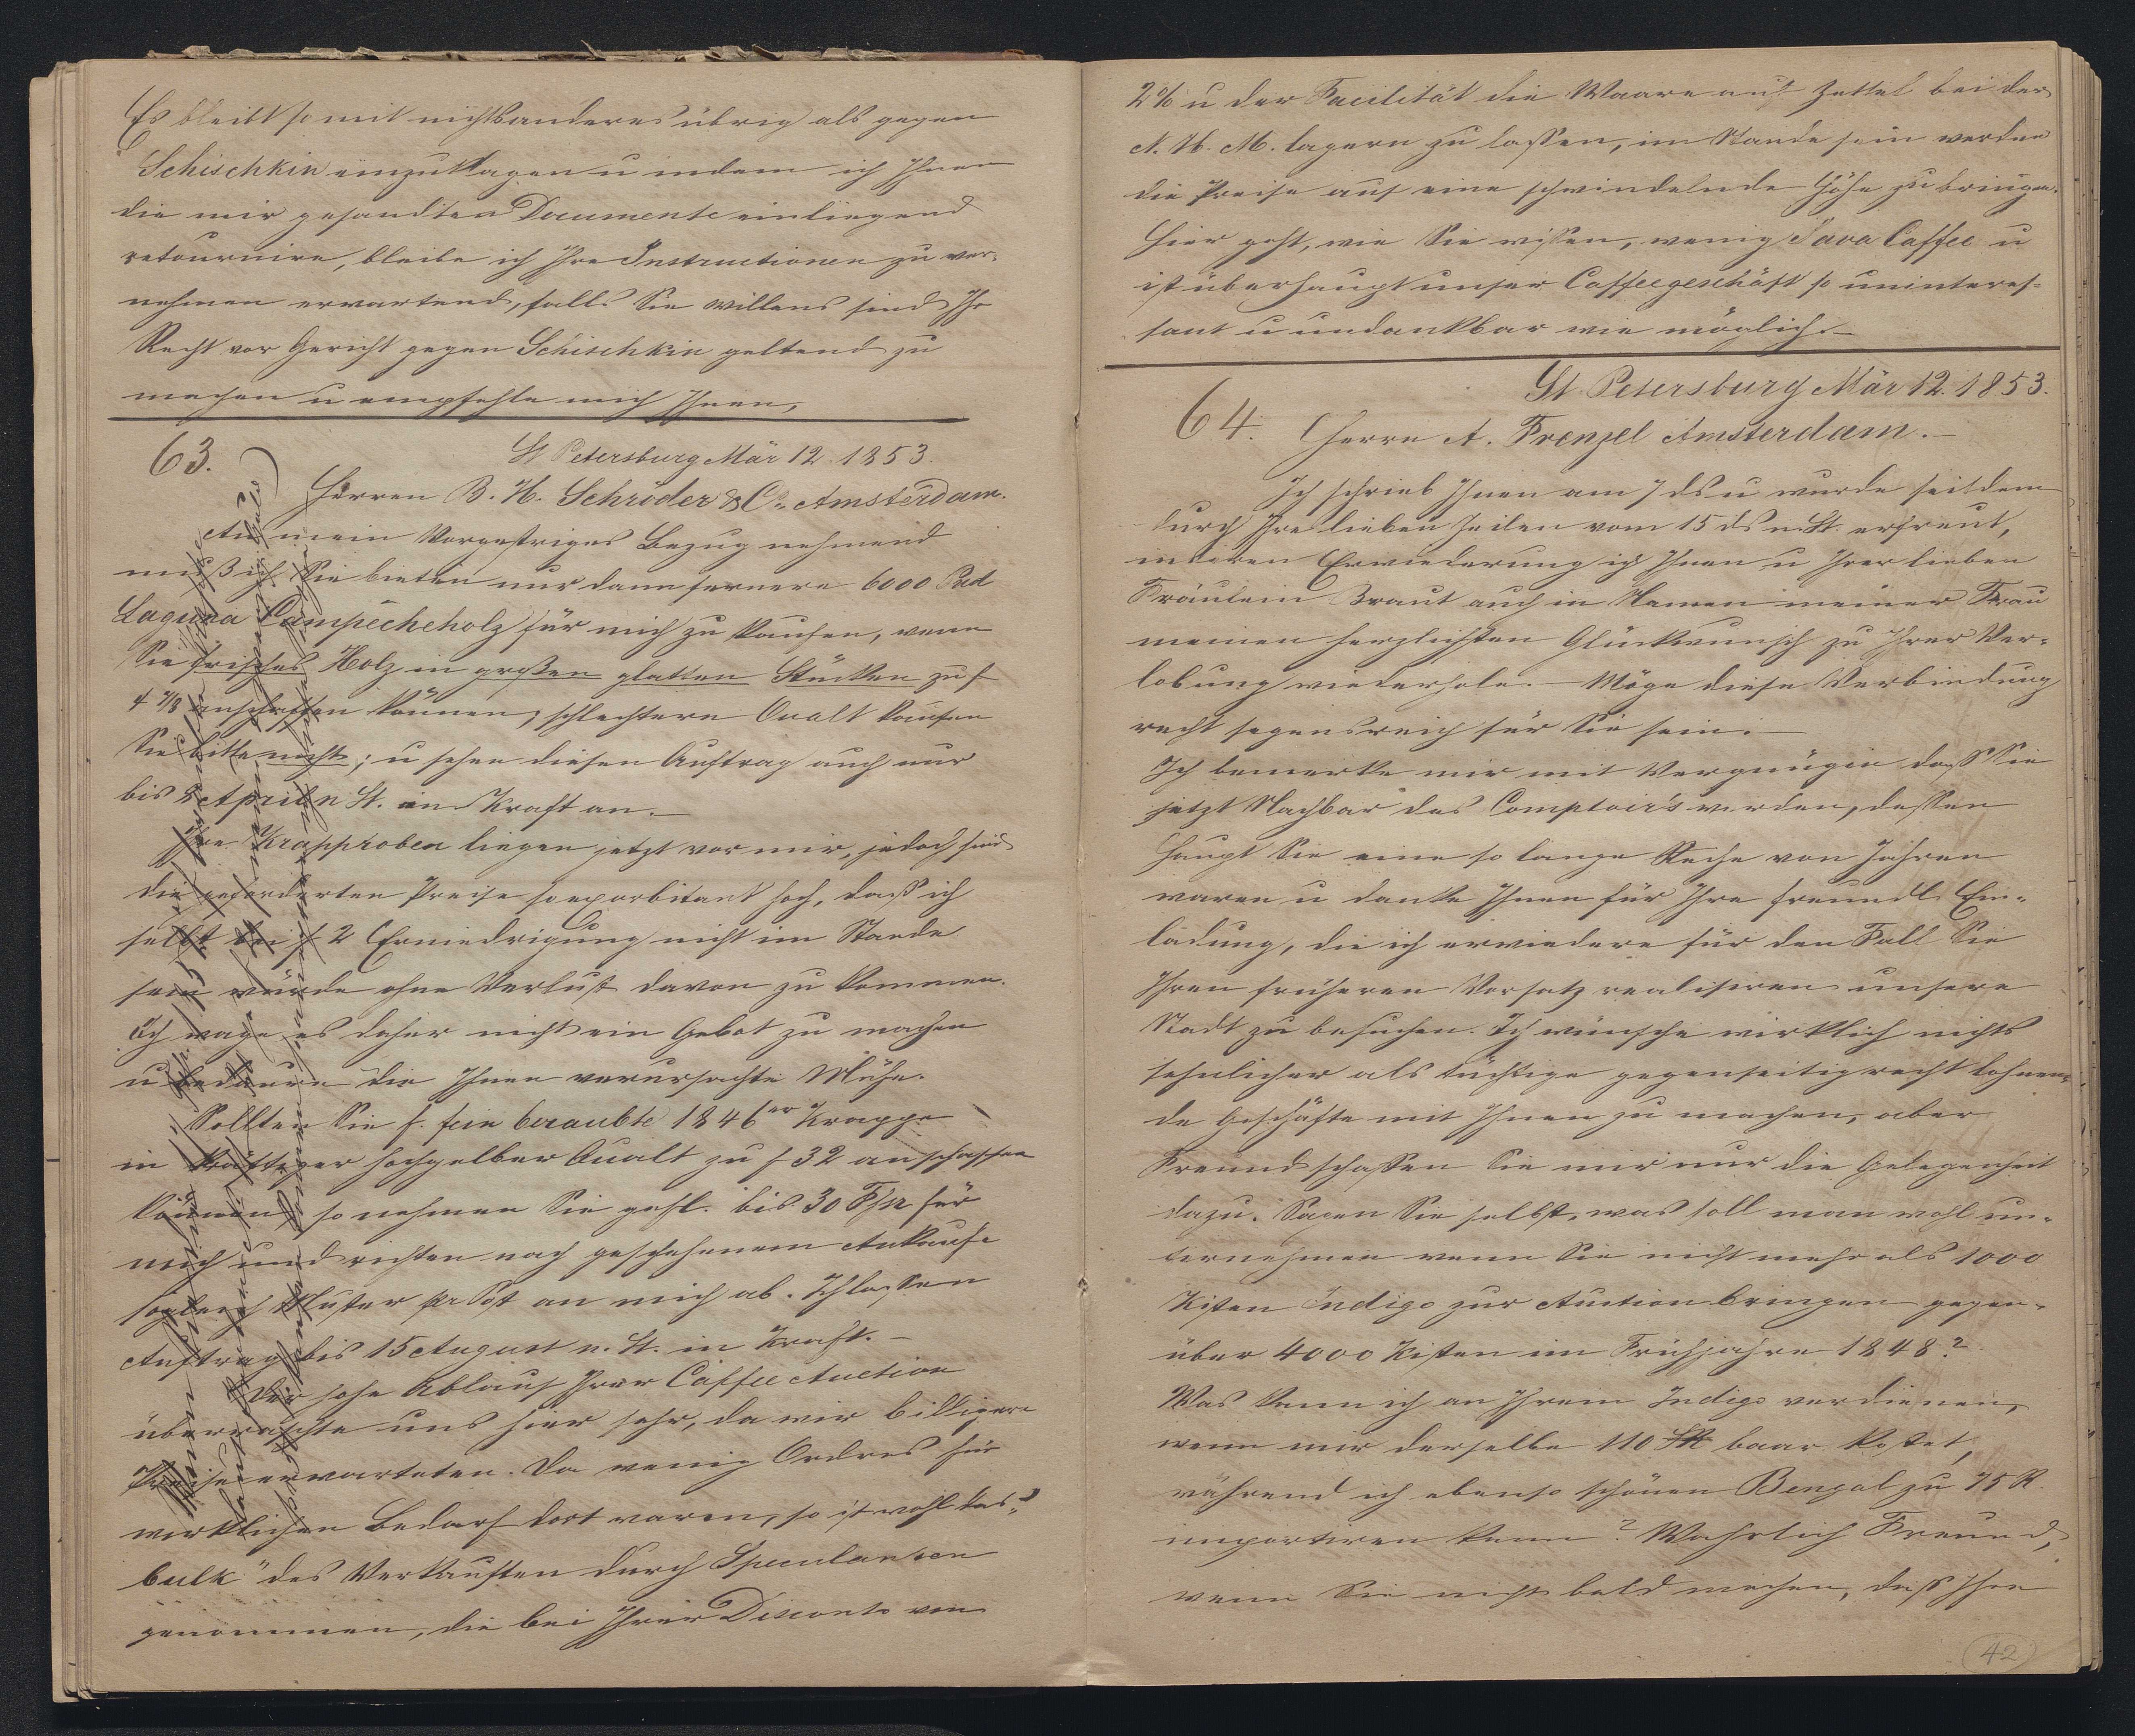 Es bleibt somit nichts anderes übrig als gegen
Schischkin einzuklagen u indem ich Ihnen
die mir gesandten Documente einliegend
retournire, bleibe ich Ihre Instructionen zu ver-
nehmen erwartend, falls Sie willens sind Ihr
Recht vor Gericht gegen Schischkin geltend zu
machen u empfehle mich Ihnen,
63. St Petersburg Mär 12. 1853.
Herren B. H. Schröder & Co Amsterdam.
An mein Vorgestriges Bezug nehmend
muß ich Sie bieten nur dann fernere 6000 Pud
Laguna Campecheholz für mich zu kaufen, wenn
Sie frisches Holz in großen glatten Stücken zu f
4 7/8 anschaffen können, schlechtere Qualt kaufen
Sie bitte nicht; u sehen diesen Auftrag auch nur
bis April n St. in Kraft an.-
Ihre Krapproben liegen jetzt vor mir, jedoch sind
die geforderten Preise so exorbitant hoch, daß ich
selbst bei f 2 Erniedrigung nicht im Stande
sein würde ohne Verlust davon zu kommen.
Ich wage es daher nicht ein Gebot zu machen
u bedaure die Ihnen verursachte Mühe.
Sollten Sie f. fein beraubte 1846er Krappe
in kräftiger hochgelber Qualt zu f 32 anschaffen
können, so nehmen Sie gefl. bis 30 Fßr für
mich und richten nach geschehenem Ankaufe
sogleich Muster pr Post an mich ab. Ich lassen
Auftrag bis 15 August n. St. in Kraft.-
Der hohe Ablauf Ihrer Caffee Auction
überraschte uns hier sehr, da wir billigere
Preise erwarteten. Da wenig Ordres für
wirklichen Bedarf dort waren, so ist wohl das "
bulk" des Verkauften durch Speculanten
genommen, die bei Ihrer Disconto von
2% u der Facilität die Waare auf Zettel bei der
N. H. M. lagern zu lassen, im Stande sein werden
die Preise auf eine schwindelnde Höhe zu bringen.
Hier geht, wie Sie wissen, wenig Java Caffee u
ist überhaupt unser Caffeegeschäft so uninteres-
sant u undankbar wie möglich.-
St Petersburg Mär 12. 1853.
64. Herrn A. Frenzel Amsterdam.-
Ich schrieb Ihnen am 7 ds u wurde seitdem
durch Ihre lieben Zeilen vom 15 ds n. St. erfreut,
in deren Erwiederung ich Ihnen u Ihrer lieben
Fräulein Braut auch in Namen meiner Frau
meinen herzlichsten Glückwunsch zu Ihrer Ver-
lobung wiederhole.- Möge diese Verbindung
recht segensreich für Sie sein.-
Ich bemerke mir mit Vergnügen daß Sie
jetzt Nachbar des Comptoir's werden, dessen
Haupt Sie eine so lange Reihe von Jahren
waren u danke Ihnen für Ihre freundl. Ein-
ladung, die ich erwiedere für den Fall Sie
Ihren früheren Vorsatz realisiren unsere
Stadt zu besuchen. Ich wünsche wirklich nichts
sehnlicher als tüchtige gegenseitig recht lohnen-
de Geschäfte mit Ihnen zu machen, aber
Freund schaffen Sie mir nur die Gelegenheit
dazu. Sagen Sie selbst, was soll man wohl un-
ternehmen wenn Sie nicht mehr als 1000
Kisten Indigo zur Auction bringen gegen-
über 4000 Kisten im Frühjahre 1848?
Was kann ich an Ihrem Indigo verdienen,
wenn mir derselbe 110 SR baar kostet,
während ich ebenso schönen Bengal zu 75 R
importiren kann? Wahrlich Freund,
wenn Sie nicht bald machen, daß Ihre
42